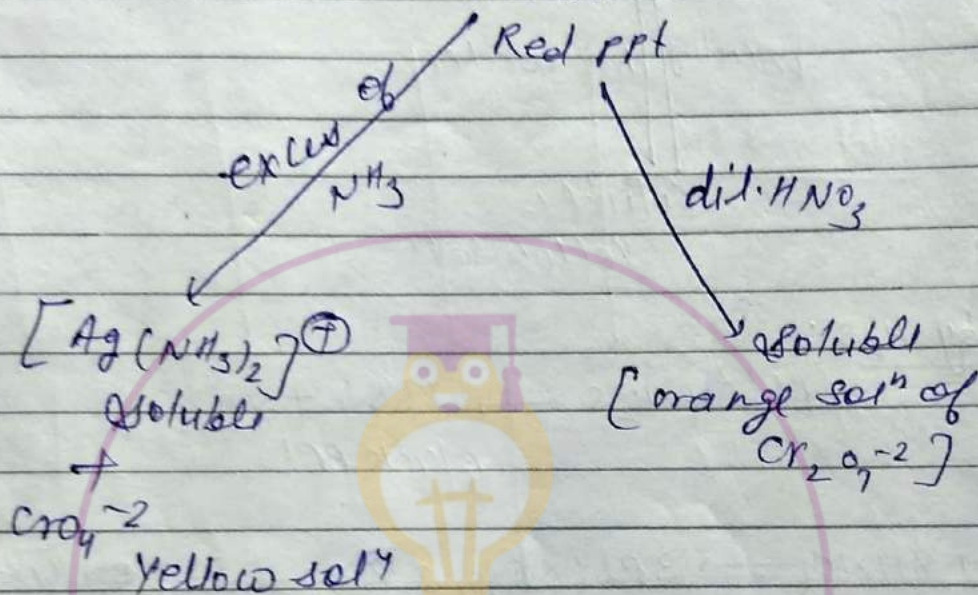 Red ppt
excess of
NH3
dil. HNO3
[Ag(NH3)2]⊕
soluble
+
CrO4^-2
Yellow solⁿ
soluble
[orange solⁿ of
Cr2O7^-2]